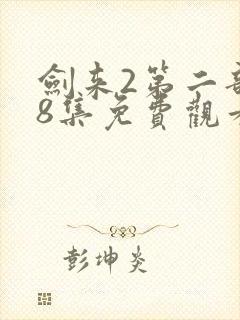 劍来2第二
8集免費觀
彭坤炎